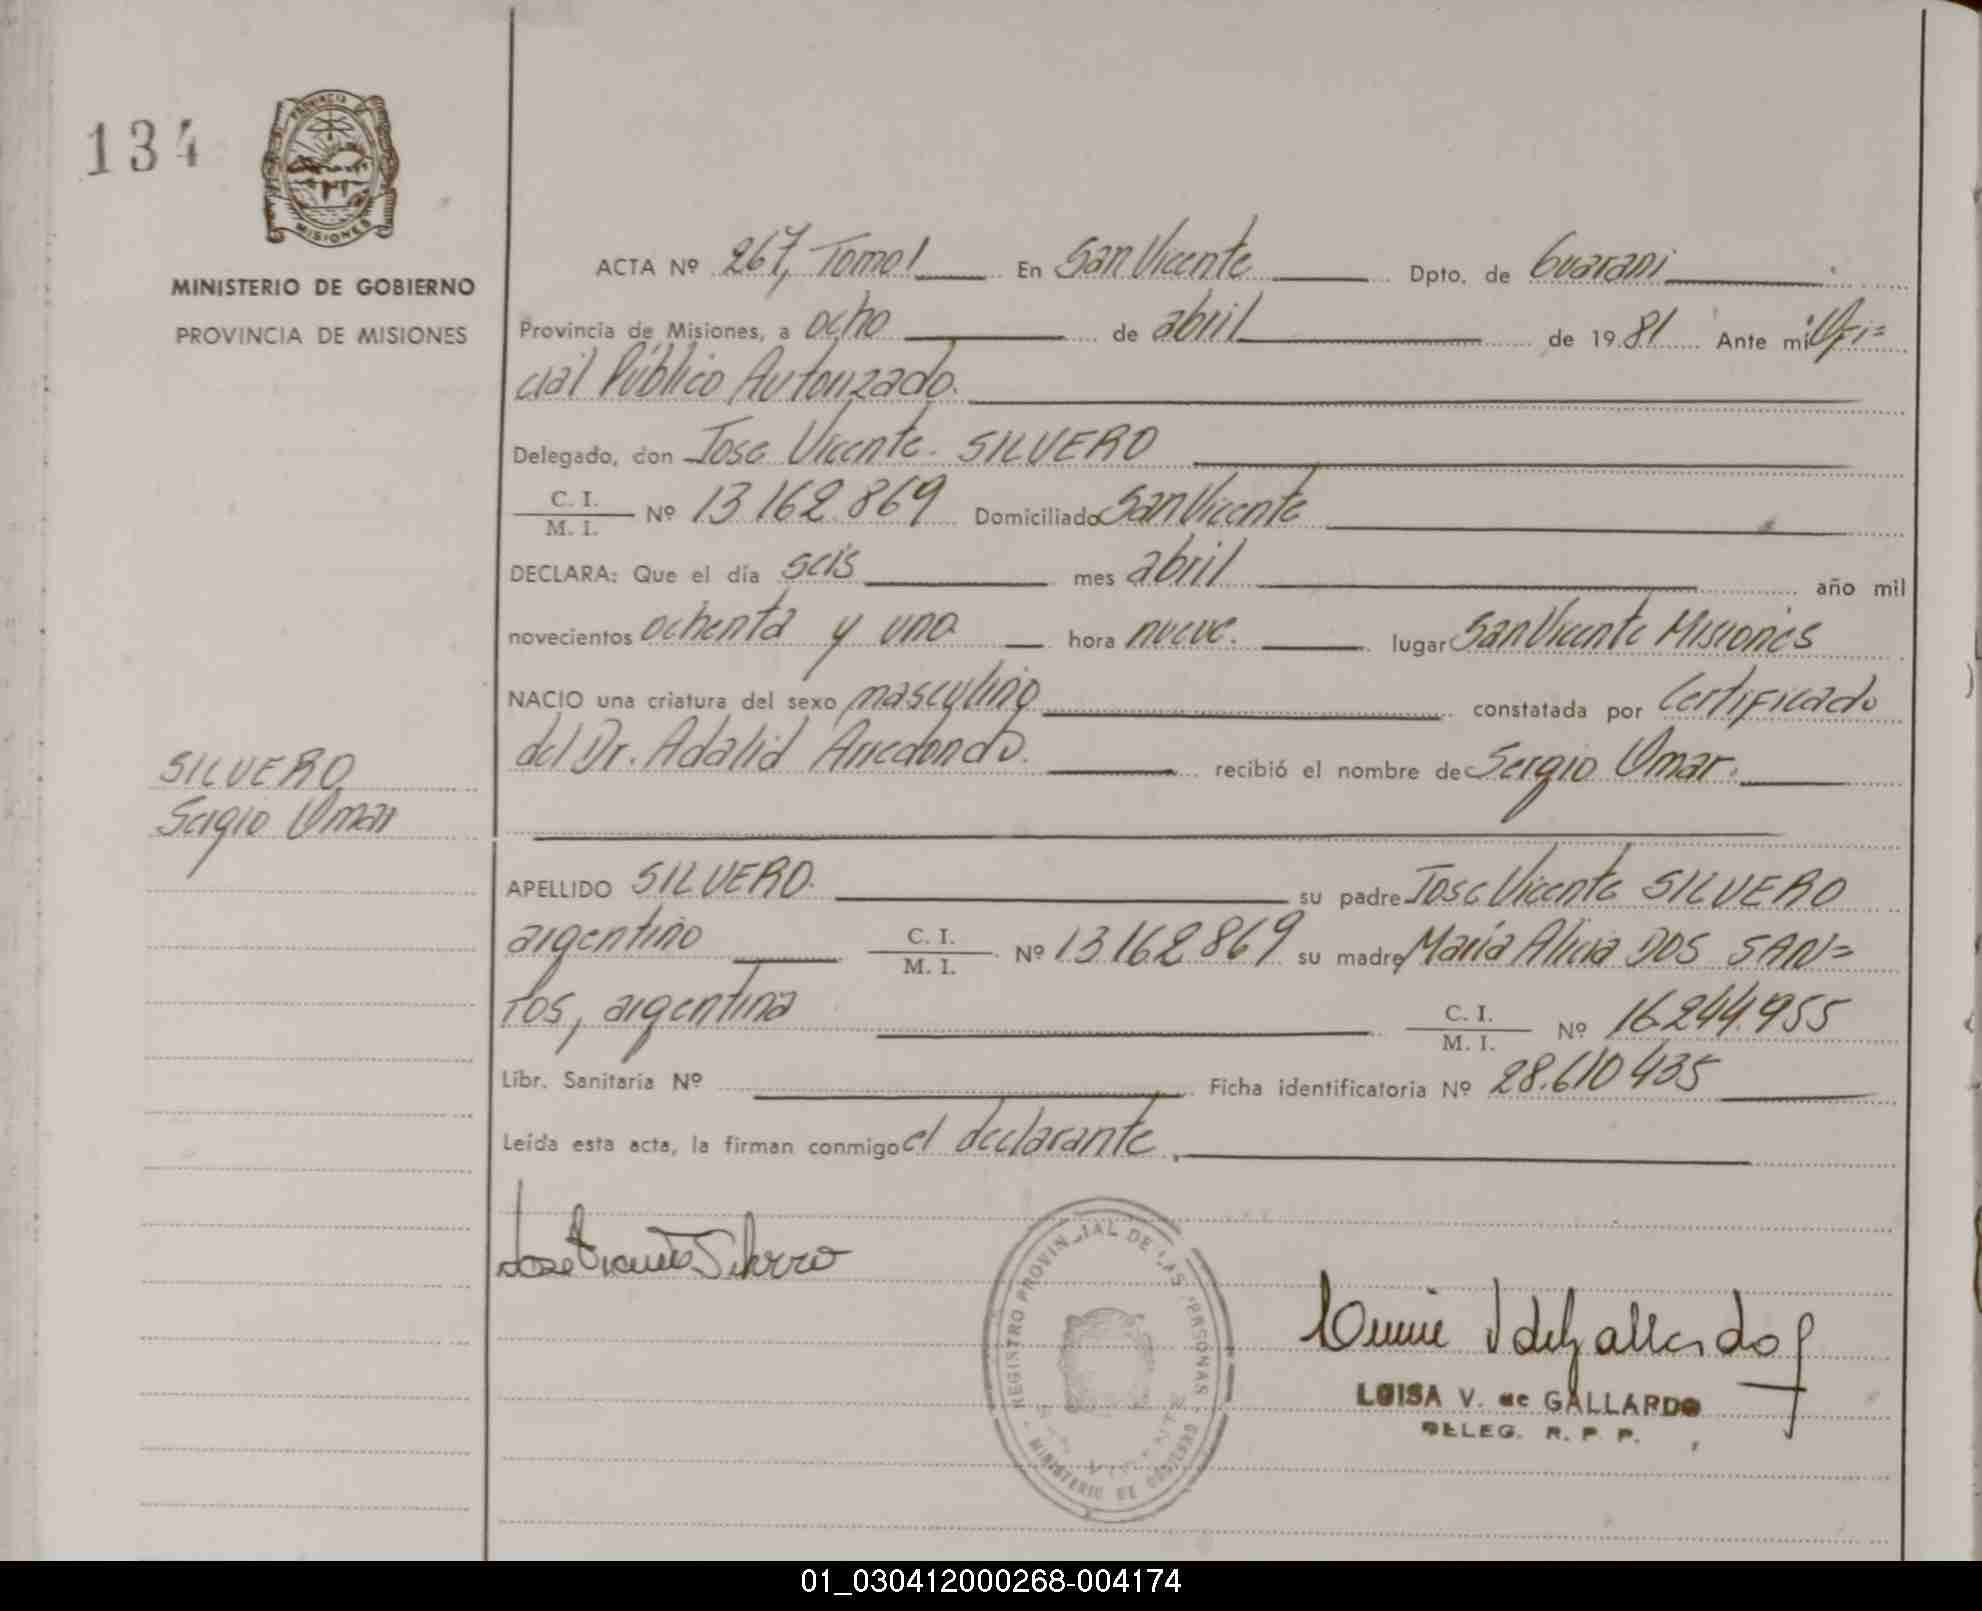 134
PROVINCIA
MISIONES
MINISTERIO DE GOBIERNO
PROVINCIA DE MISIONES
ACTA Nº 267, Tomo I En San Vicente Dpto. de Guarani
Provincia de Misiones, a ocho de abril de 1981 Ante mi Ofi=
cial Público Autorizado.
Delegado, don Jose Vicente. SILVERO
C. I.
M. I. Nº 13.162.869 Domiciliado San Vicente
DECLARA: Que el día seis mes abril año mil
novecientos ochenta y uno hora nueve. lugar San Vicente Misiones
NACIO una criatura del sexo masculino constatada por Certificado
del Dr. Adalid Arredondo. recibió el nombre de Sergio Omar.
SILVERO
Sergio Omar
APELLIDO SILVERO. su padre Jose Vicente SILVERO
argentino C. I. M. I. Nº 13.162.869 su madre María Alicia DOS SAN=
TOS, argentina C. I. M. I. Nº 16.244.955
Libr. Sanitaria Nº Ficha identificatoria Nº 28.610.435
Leída esta acta, la firman conmigo el declarante.
Jose Vicente Silvero
REGISTRO PROVINCIAL DE LAS PERSONAS
SAN VICENTE
MINISTERIO DE GOBIERNO
V de Gallardo
LUISA V. de GALLARDO
DELEG. R. P. P.
01_030412000268-004174